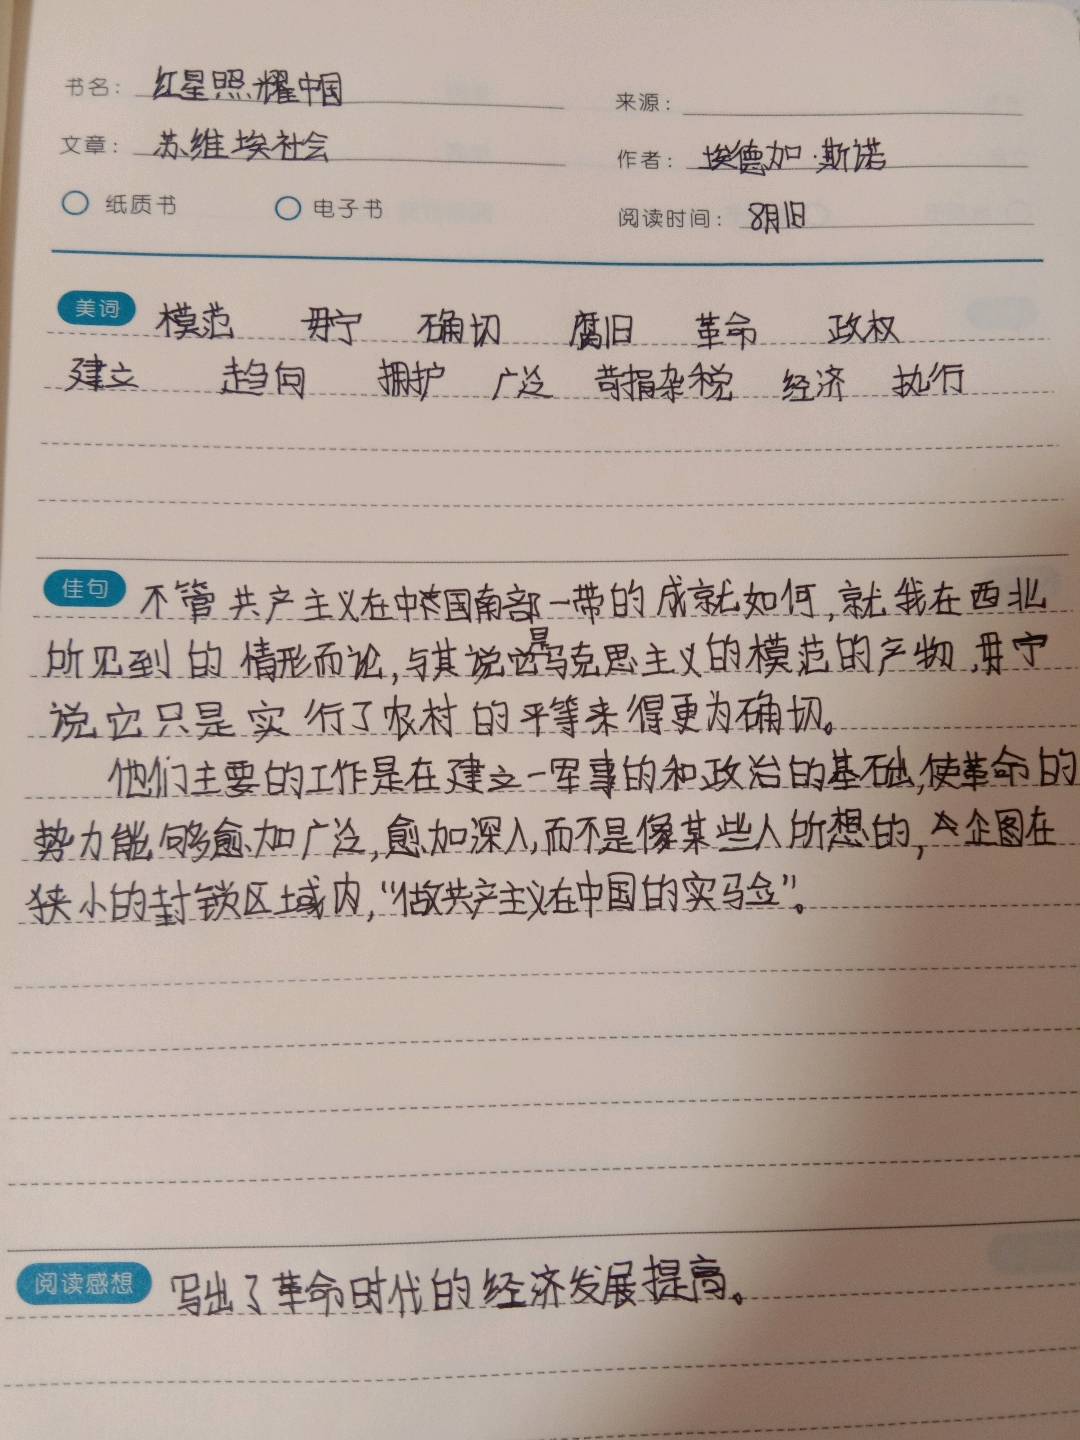 书名： 红星照耀中国
来源：
文章： 苏维埃社会
作者： 埃德加·斯诺
纸质书 电子书
阅读时间： 8月1日
美词 模范 毋宁 确切 腐旧 革命 政权
建立 趋向 拥护 广泛 苛捐杂税 经济 执行
佳句 不管共产主义在中国南部一带的成就如何,就我在西北
所见到的情形而论,与其说它是马克思主义的模范的产物,毋宁
说它只是实行了农村的平等来得更为确切。
他们主要的工作是在建立一军事的和政治的基础,使革命的
势力能够愈加广泛,愈加深入,而不是像某些人所想的,企图在
狭小的封锁区域内,“做共产主义在中国的实验”。
阅读感想 写出了革命时代的经济发展提高。